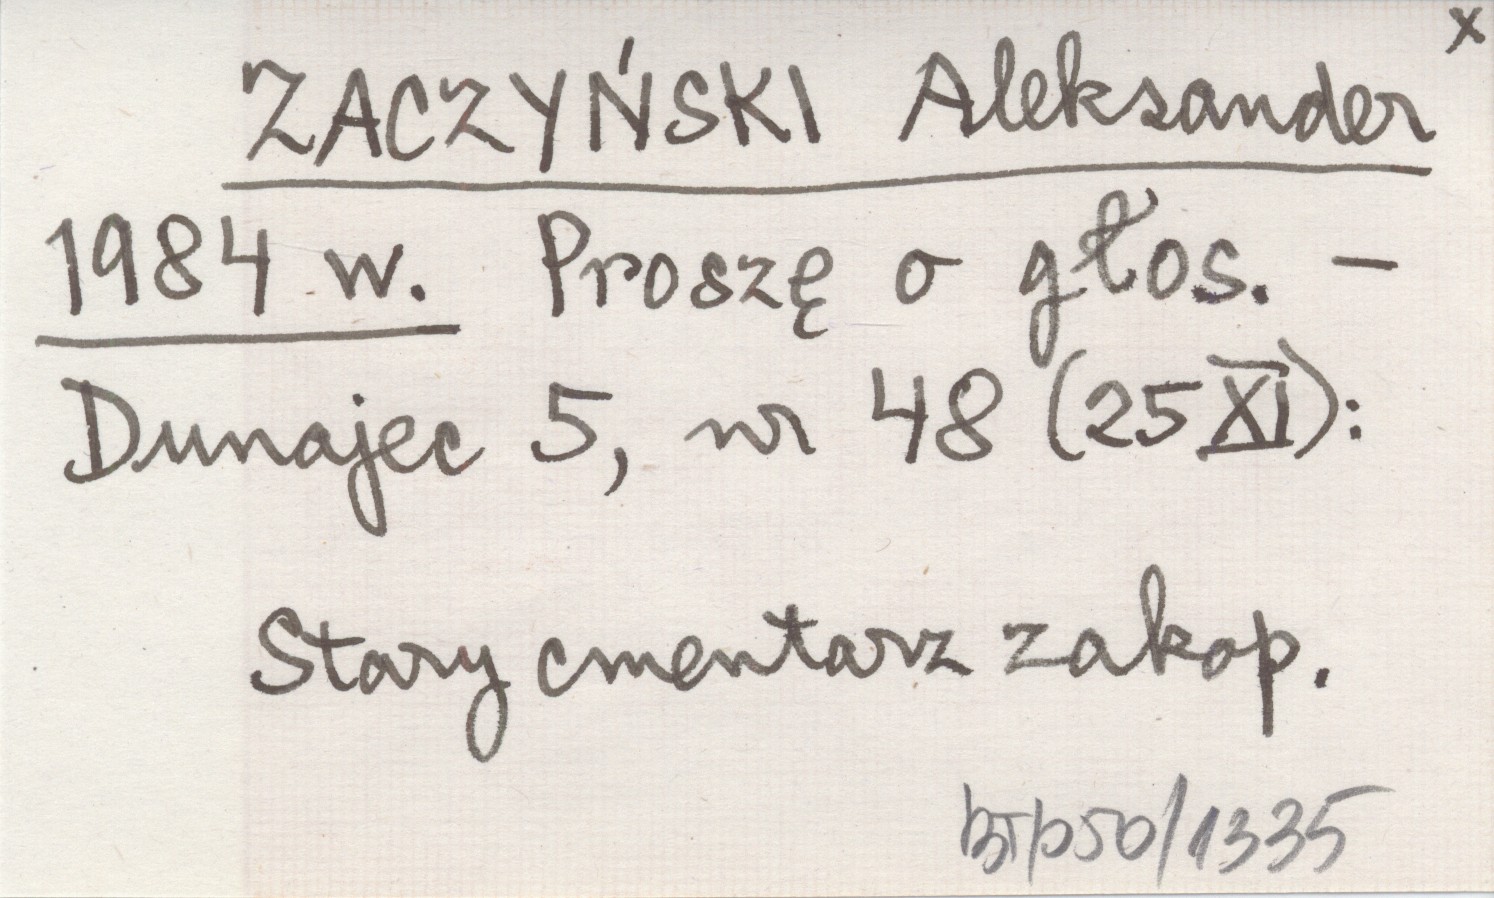 x
ZACZYŃSKI Aleksander
1984 w. Proszę o głos. –
Dunajec 5, nr 48 (25 XI):
Stary cmentarz zakop.
50/1335